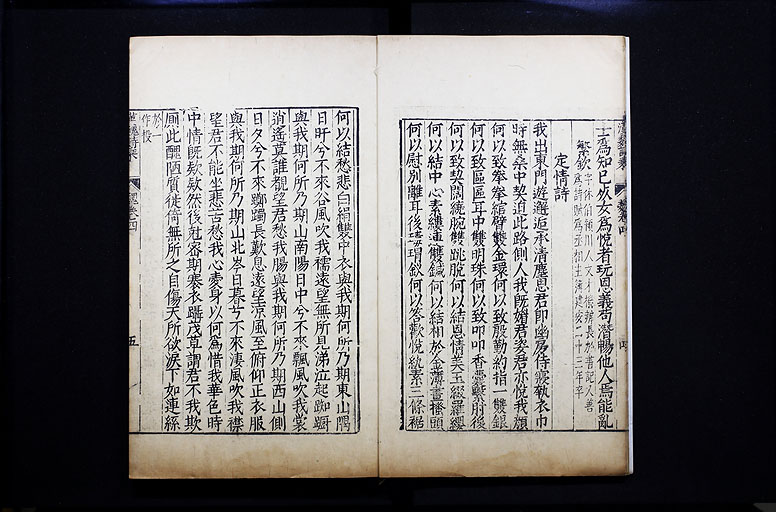 士為知已死女為悅者玩恩義苟潛暢他人焉能亂
繁欽
字休伯潁川人文才機辯長於書記又善
為詩賦為丞相主簿建安二十三年卒
定情詩
我出東門遊邂逅承清塵思君即幽房侍寢執衣巾
時無桑中契迫此路側人我既媚君姿君亦悅我顏
何以致拳拳綰臂雙金環何以致殷勤約指一雙銀
何以致區區耳中雙明珠何以致叩叩香囊繫肘後
何以致契闊繞腕雙跳脫何以結恩情美玉綴羅纓
何以結中心素縷連雙鍼何以結相於金薄畫搔頭
何以慰別離耳後瑇瑁釵何以答歡悅紈素三條裾
何以結愁悲白絹雙中衣與我期何所乃期東山隅
日旰兮不來谷風吹我襦遠望無所見涕泣起踟躕
與我期何所乃期山南陽日中兮不來飄風吹我裳
逍遙莫誰覩望君愁我腸與我期何所乃期西山側
日夕兮不來躑躅長歎息遠望涼風至俯仰正衣服
與我期何所乃期山北岑日暮兮不來淒風吹我襟
望君不能坐悲苦愁我心愛身以何為惜我華色時
中情既欵欵然後尅密期褰衣躡茂草謂君不我欺
厠此醜陋質徙倚無所之自傷失所欲淚下如連絲
於一
作投
五